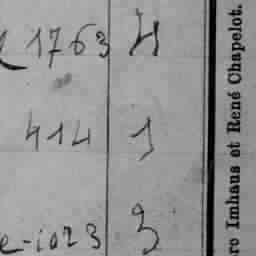 1763 4
414 1
e-1023 3
ro Imhaus et René Chapelot.